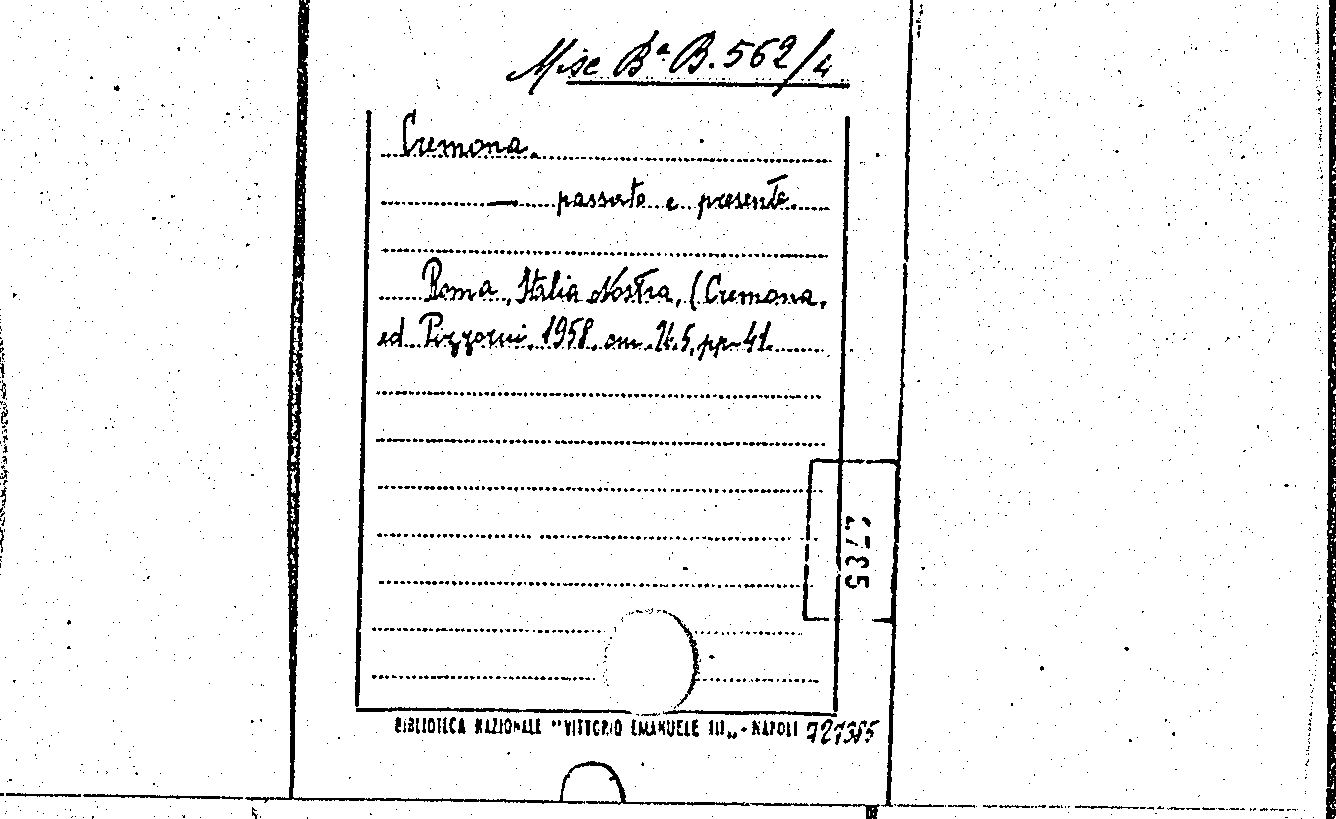 Misc Bª B.562/4
Cremona.
— passato e presente.
Roma, Italia Nostra, (Cremona,
ed. Pizzorni, 1958, cm. 24.5, pp. 41.
BIBLIOTECA NAZIONALE "VITTORIO EMANUELE III„ - NAPOLI 727385